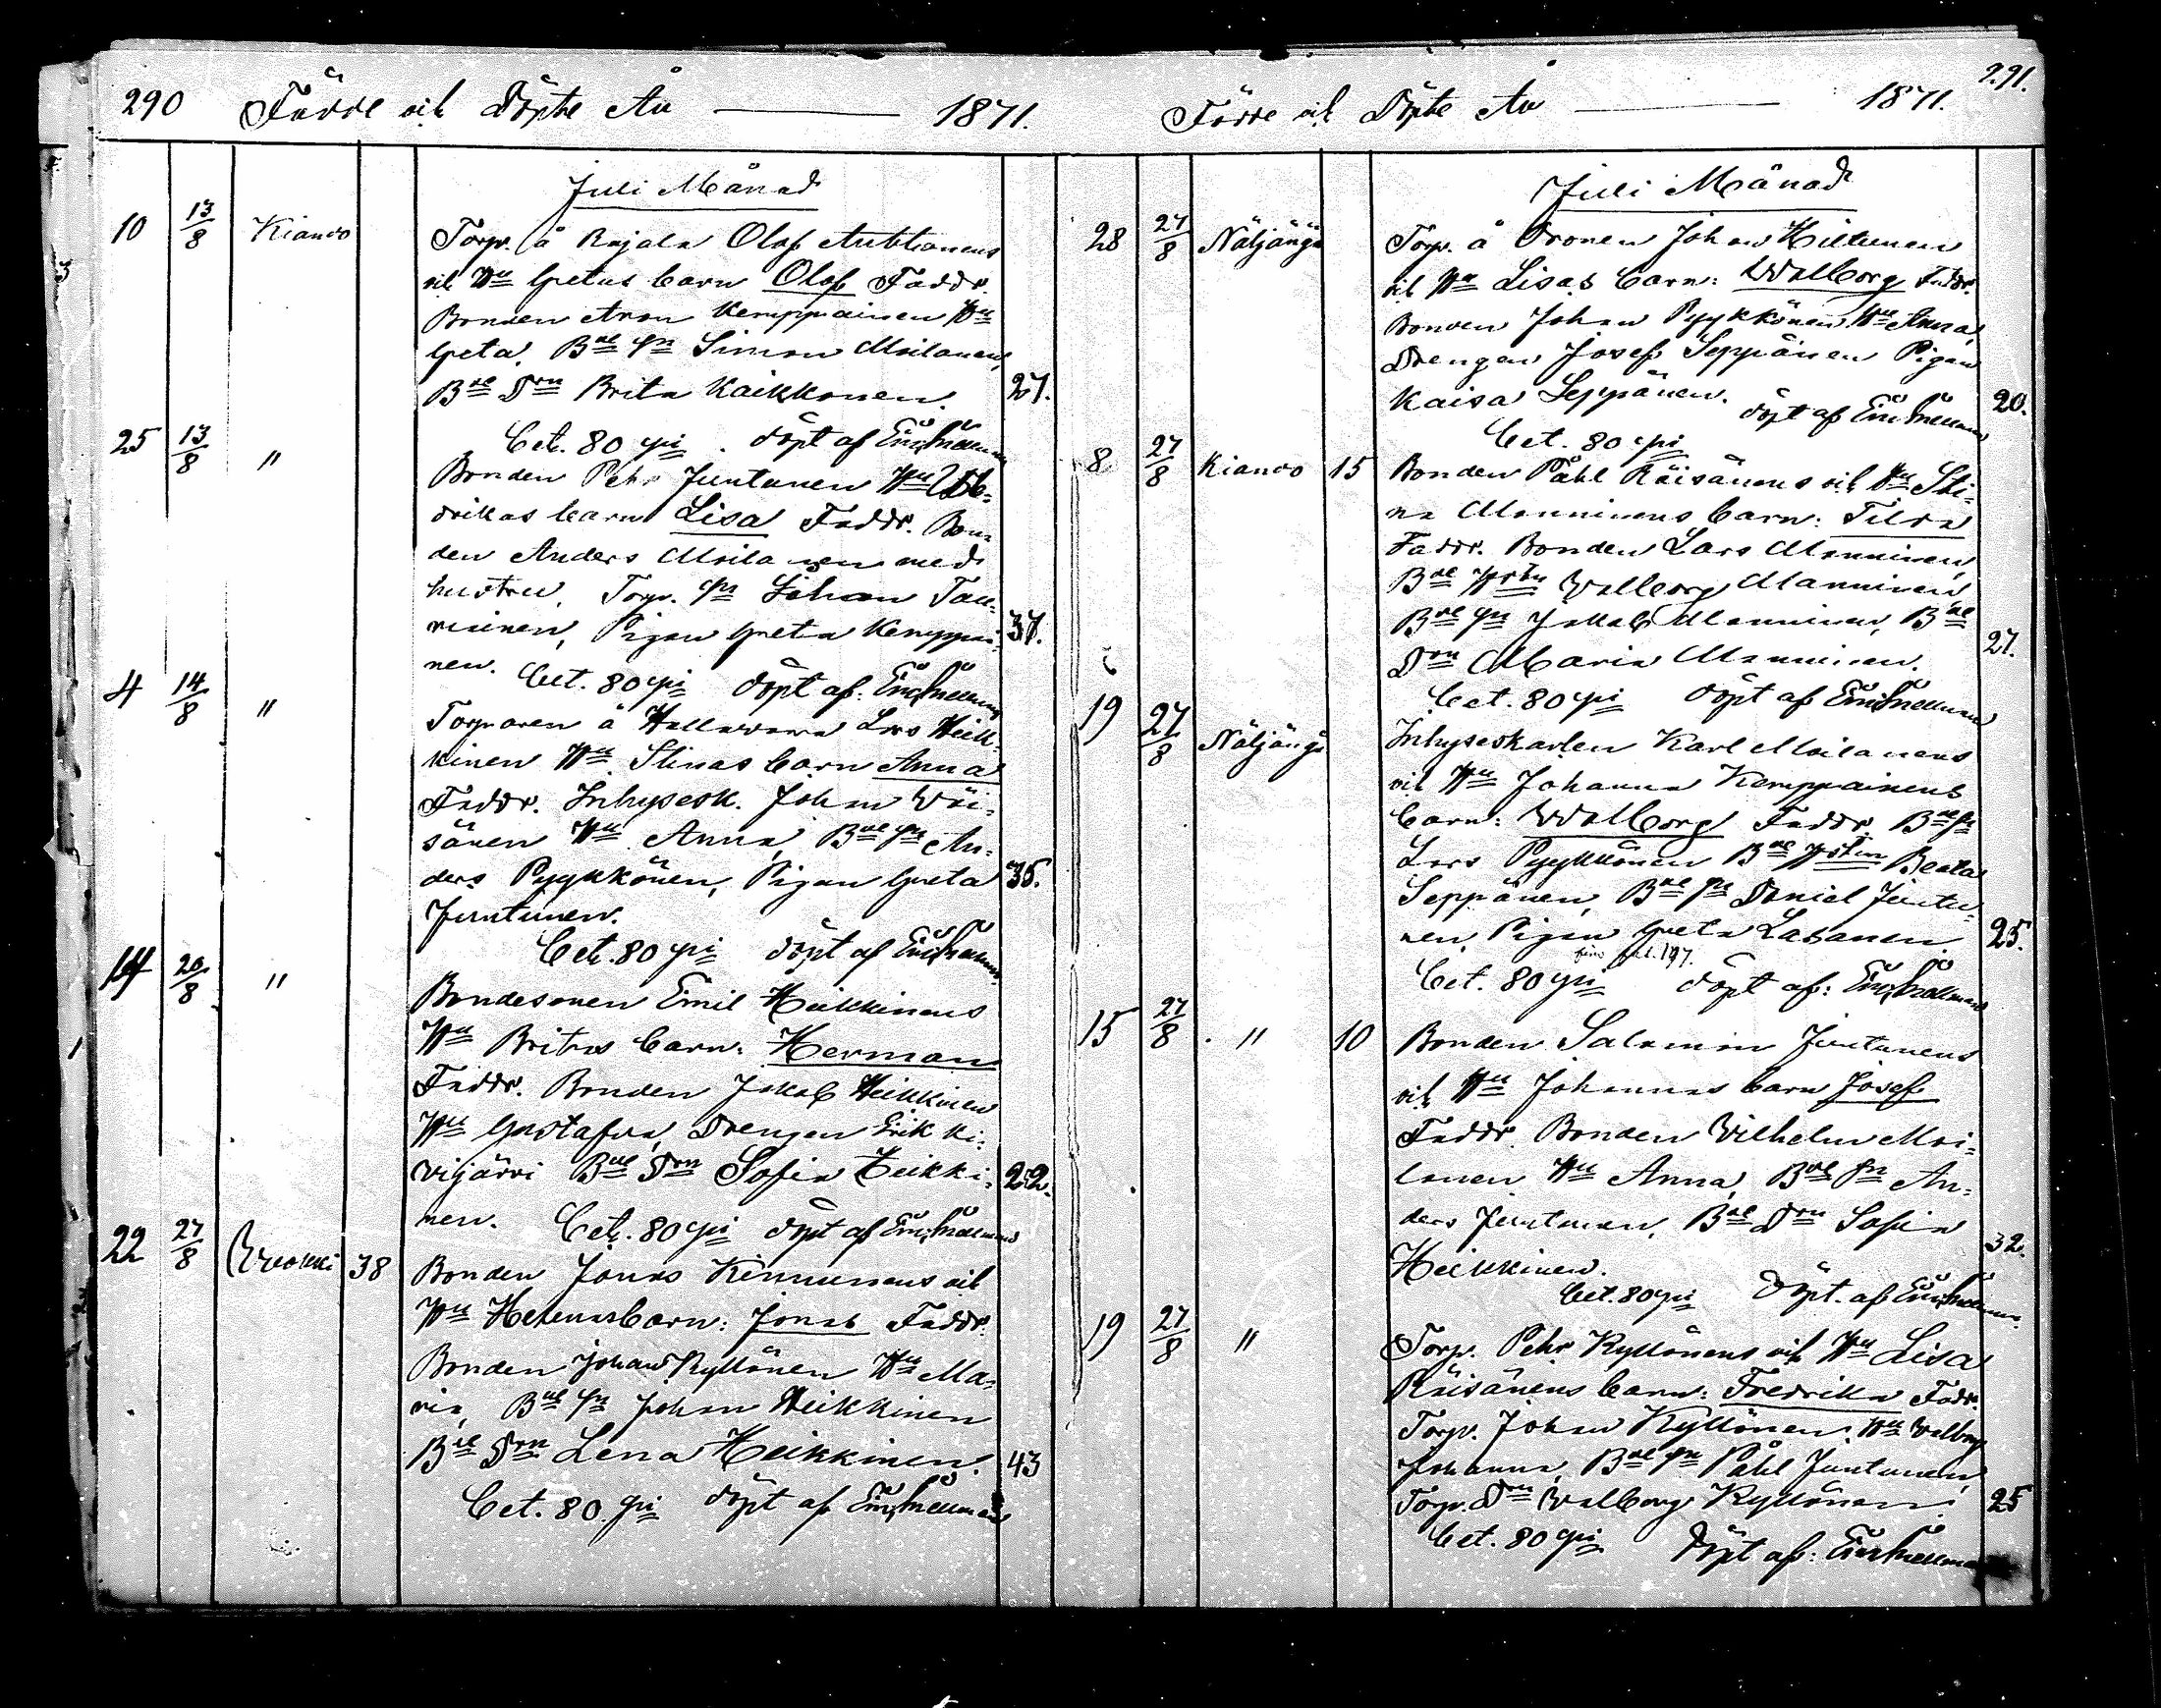 290 Födde och Döpte År 1871.
Juli Månad
10 13/8 Kiando Torp. å Rajala Olof Anttonens
och Hu Gretas barn Olof Faddr.
Bonden Aron Kemppainen Hu
Greta, Bde Sn Simon Moilanen,
Bde Drn Brita Kaikkonen. 27.
Att. 80 pi. döpt af Em. Snellman
25 13/8 " Bonden Pehr Juntunen Hu
drikas barn Lisa Faddr. Bon-
den Anders Moilanen med
hustru, Torp. Sn Johan Tau-
riainen, Pigan Greta Kemppai- 37.
nen. Att. 80 pi döpt af: Em. Snellman
4 14/8 " Torparen å Hallavara Lars Heik-
kinen Hu Stinas barn Anna
Faddr. Inhysesk. Johan Väi-
sänen Hu Anna, Bde Sn An-
ders Pyykkönen, Pigan Greta 35.
Juntunen.
Att. 80 pi döpt af Em. Snellman
14 20/8 " Bondesonen Emil Heikkinens
Hu Britas barn: Herman
Faddr. Bonden Jakob Heikkinen
Hu Gustafva, Drengen Erik Ki-
vijärvi Bde Drn Sofia Heikki- 22.
nen. Att. 80 pi döpt af Em. Snellman
22 27/8 38 Bonden Jonas Kinnunens och
Hu Helenas barn: Jonas Faddr.
Bonden Johan Kyllönen Hu Ma-
ria, Bde Sn Johan Heikkinen
Bde Drn Lena Heikkinen. 43
Att. 80 pi döpt af Em. Snellman
291.
Födde och Döpte År 1871.
Juli Månad
28 27/8 Näljängä Torp. å Oronen Johan Hiltunen
och Hu Lisas barn: Walborg Faddr.
Bonden Johan Pyykkönen Hu Anna,
Drengen Josef Seppänen Pigan
Kaisa Seppänen. döpt af Em. Snellman 20.
Att. 80 pi
8 27/8 Kiando 15 Bonden Påhl Räisänens och Hu Sti-
na Manninens barn: Tilda
Faddr. Bonden Lars Manninen,
Bde Hstu Walborg Manninen,
Bde Sn Jakob Manninen, Bde
Drn Maria Manninen. 27.
Att. 80 pi döpt af Em. Snellman
19 27/8 Näljängä Inhyseskarlen Karl Moilanens
och Hu Johanna Kemppainens
barn: Walborg Faddr. Bde Sn
Lars Pyykkönen Bde Hstun Beata
Seppänen, Bde Sn Daniel Juntu-
nen, Pigan Greta Lasanen. 25.
197.
Att. 80 pi döpt af: Em. Snellman
15 27/8 " 10 Bonden Salomon Juntunens
och Hu Johannas barn Josef
Faddr. Bonden Wilhelm Moi-
lanen Hu Anna, Bde Sn An-
ders Juntunen, Bde Drn Sofia
Heikkinen. 32.
Att. 80 pi döpt. af Em. Snellman
19 27/8 " Torp. Pehr Kyllönens och Hu Lisa
Räisänens barn: Fredrika Fadr.
Torp. Johan Kyllönen, Hu Walborg
Johanna, Bde Sn Påhl Juntunen,
Torp. Drn Walborg Kyllönen. 25
Att. 80 pi döpt af: Em. Snellman